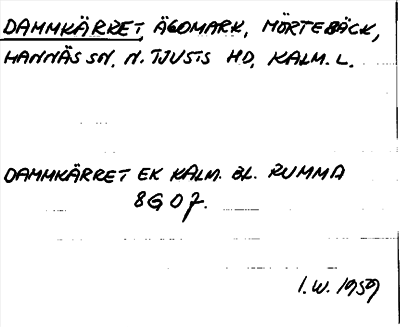 DAMMKÄRRET, ÄGOMARK, MÖRTEBÄCK,
HANNÄS SN, N. TJUSTS HD, KALM. L.
DAMMKÄRRET EK KALM. BL. RUMMA
8G 07.
I.W. 1959